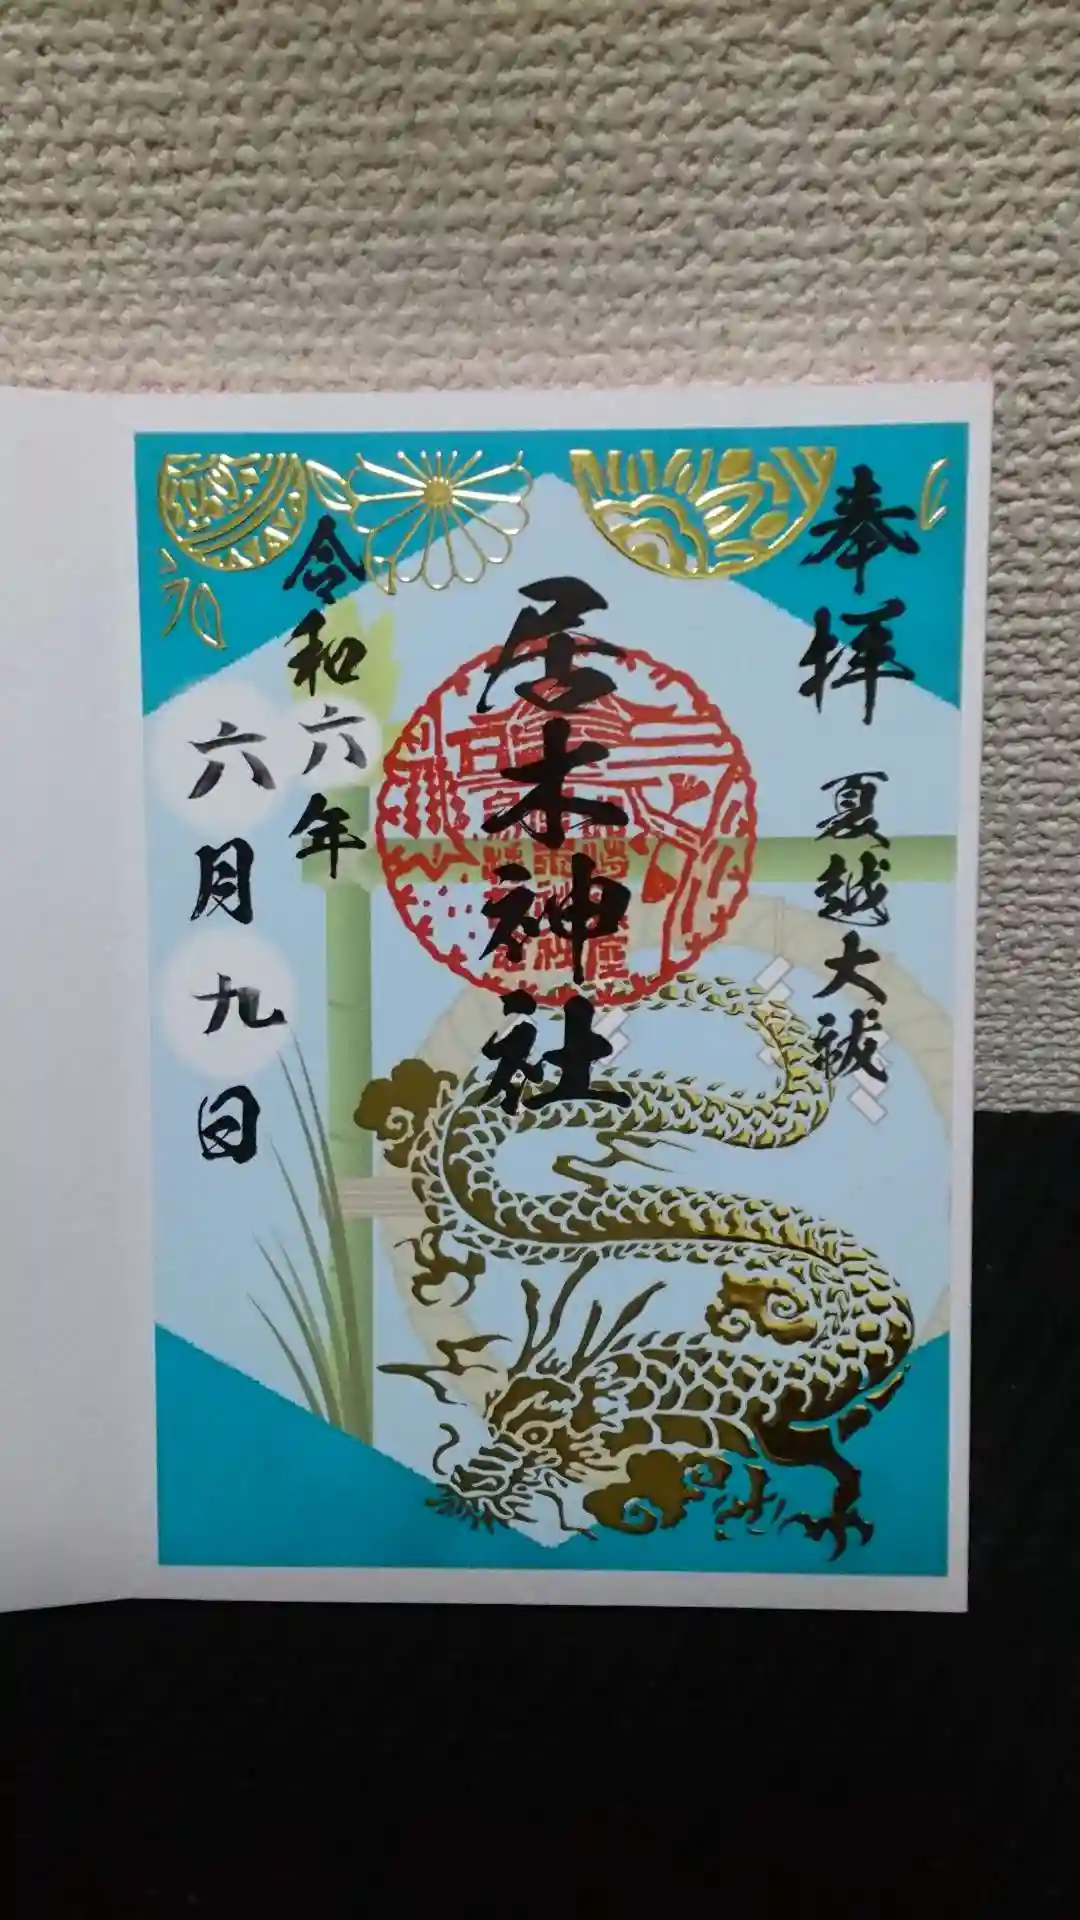 奉拝 夏越大祓
居木神社
令和六年
六月九日